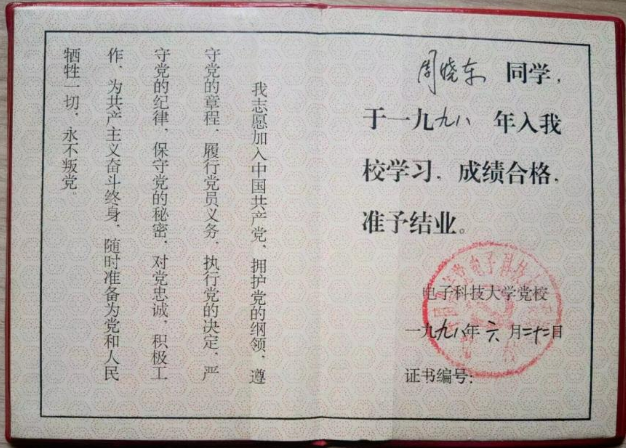 我志愿加入中国共产党，拥护党的纲领，遵
守党的章程，履行党员义务，执行党的决定，严
守党的纪律，保守党的秘密，对党忠诚，积极工
作，为共产主义奋斗终身，随时准备为党和人民
牺牲一切，永不叛党。
周晓东 同学，
于一九九八 年入我
校学习，成绩合格，
准予结业。
电子科技大学党校
一九九八年六月二十二日
证书编号：